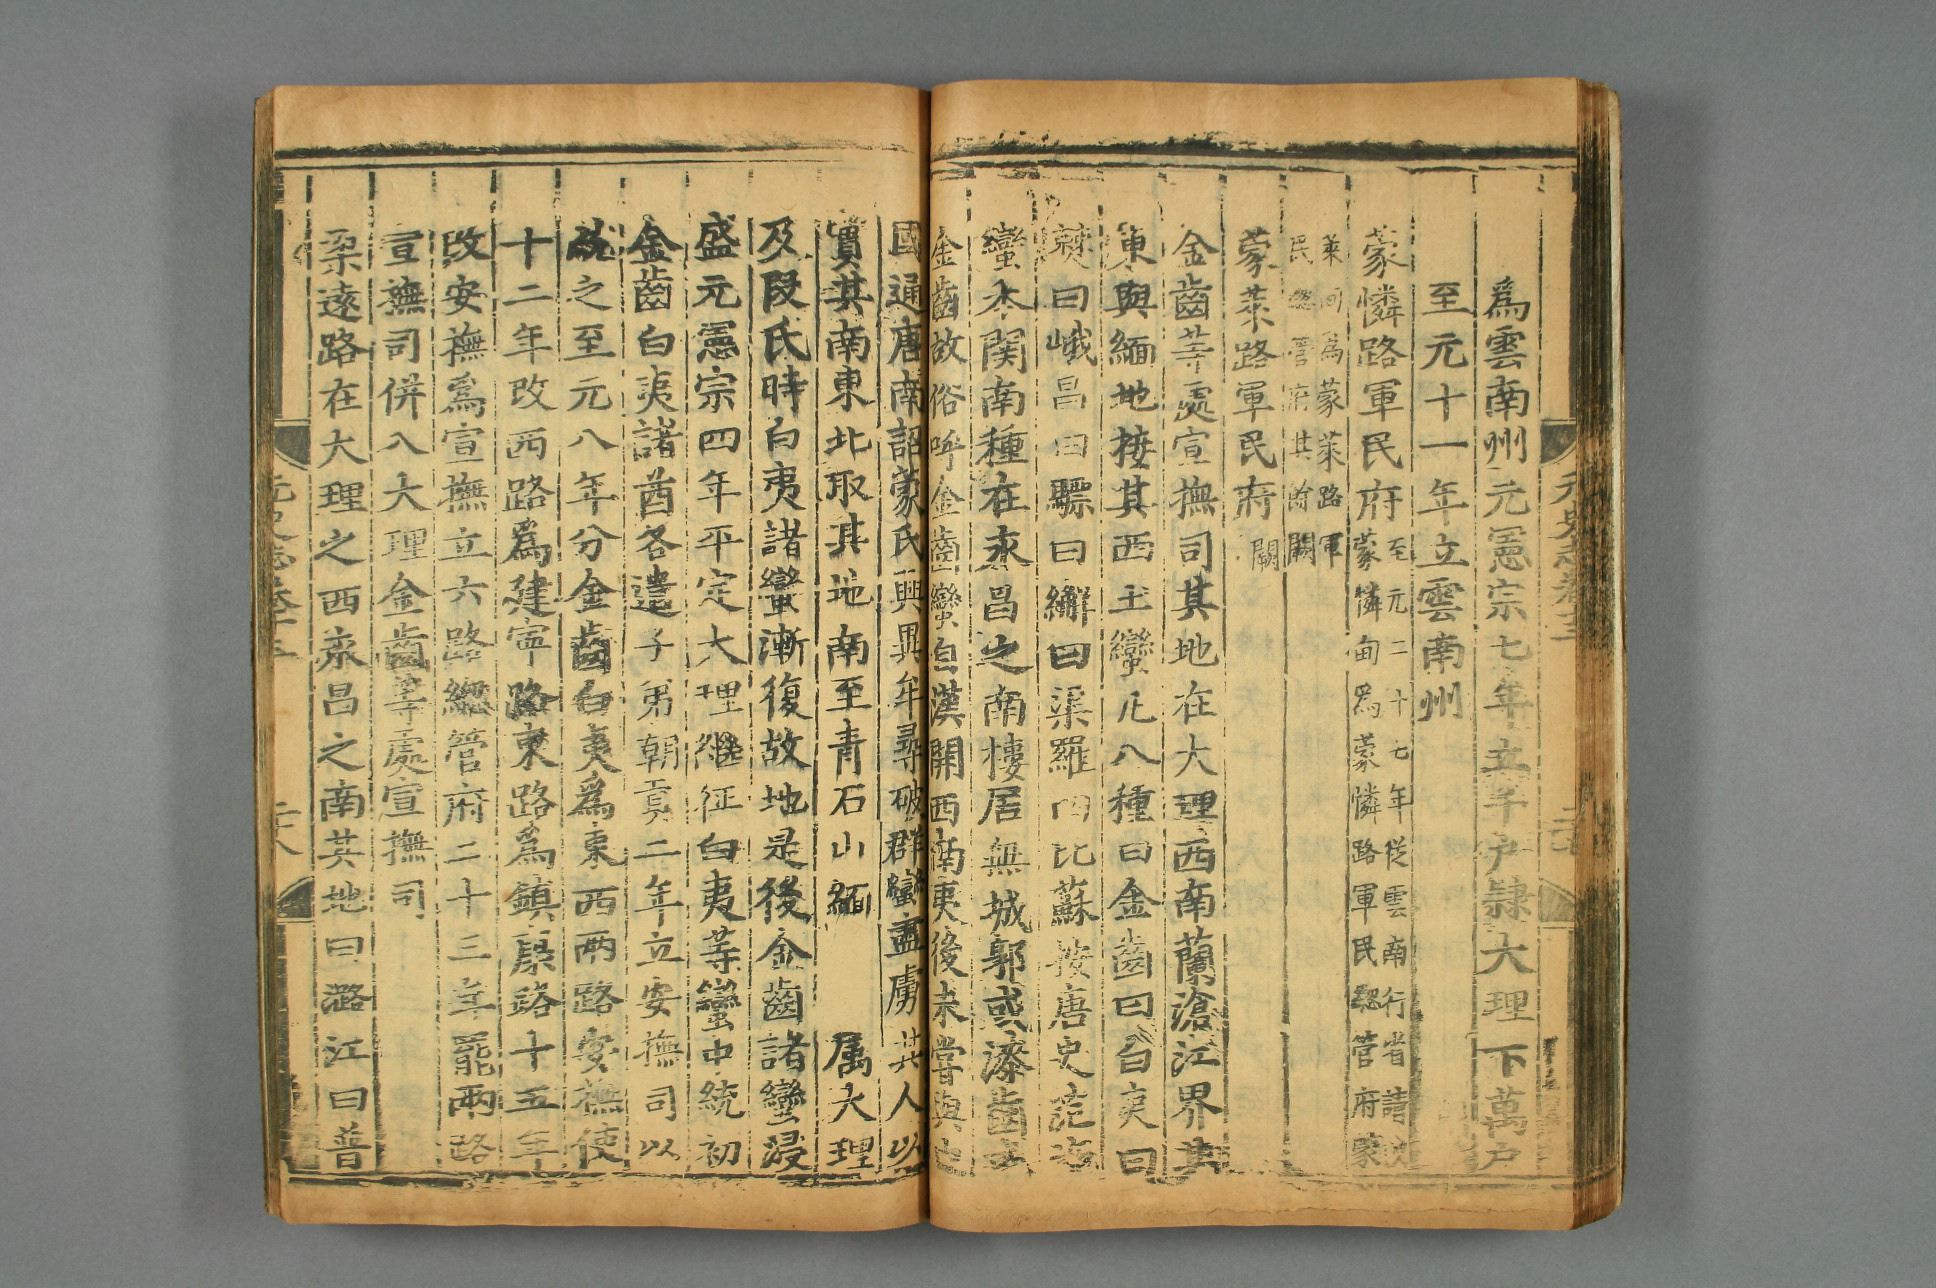 為雲南州元憲宗七年立千戶隸大理下萬戶
至元十一年立雲南州
蒙憐路軍民府至元二十七年從雲南行省請以
蒙憐甸為蒙憐路軍民總管府蒙
萊甸為蒙萊路軍
民總管府其餘闕
蒙萊路軍民府闕
金齒等處宣撫司其地在大理西南蘭滄江界其
東與緬地接其西土蠻凡八種曰金齒曰白夷曰
僰曰峨昌曰驃曰繲曰渠羅曰比蘇按唐史茫施
蠻本関南種在永昌之南樓居無城郭或漆齒或
金齒故俗呼金齒蠻自漢開西南夷後未嘗與中
國通唐南詔蒙氏興異牟尋破群蠻盡虜其人以
實其南東北取其地南至青石山緬 属大理
及段氏時白夷諸蠻漸復故地是後金齒諸蠻浸
盛元憲宗四年平定大理繼征白夷等蠻中統初
金齒白夷諸酋各遣子弟朝貢二年立安撫司以
統之至元八年分金齒白夷為東西兩路安撫使
十二年改西路為建寧路東路為鎮康路十五年
改安撫為宣撫立六路緫管府二十三年罷兩路
宣撫司併入大理金齒等處宣撫司
柔遠路在大理之西永昌之南其地曰潞江曰普
元史志卷十三
二十八